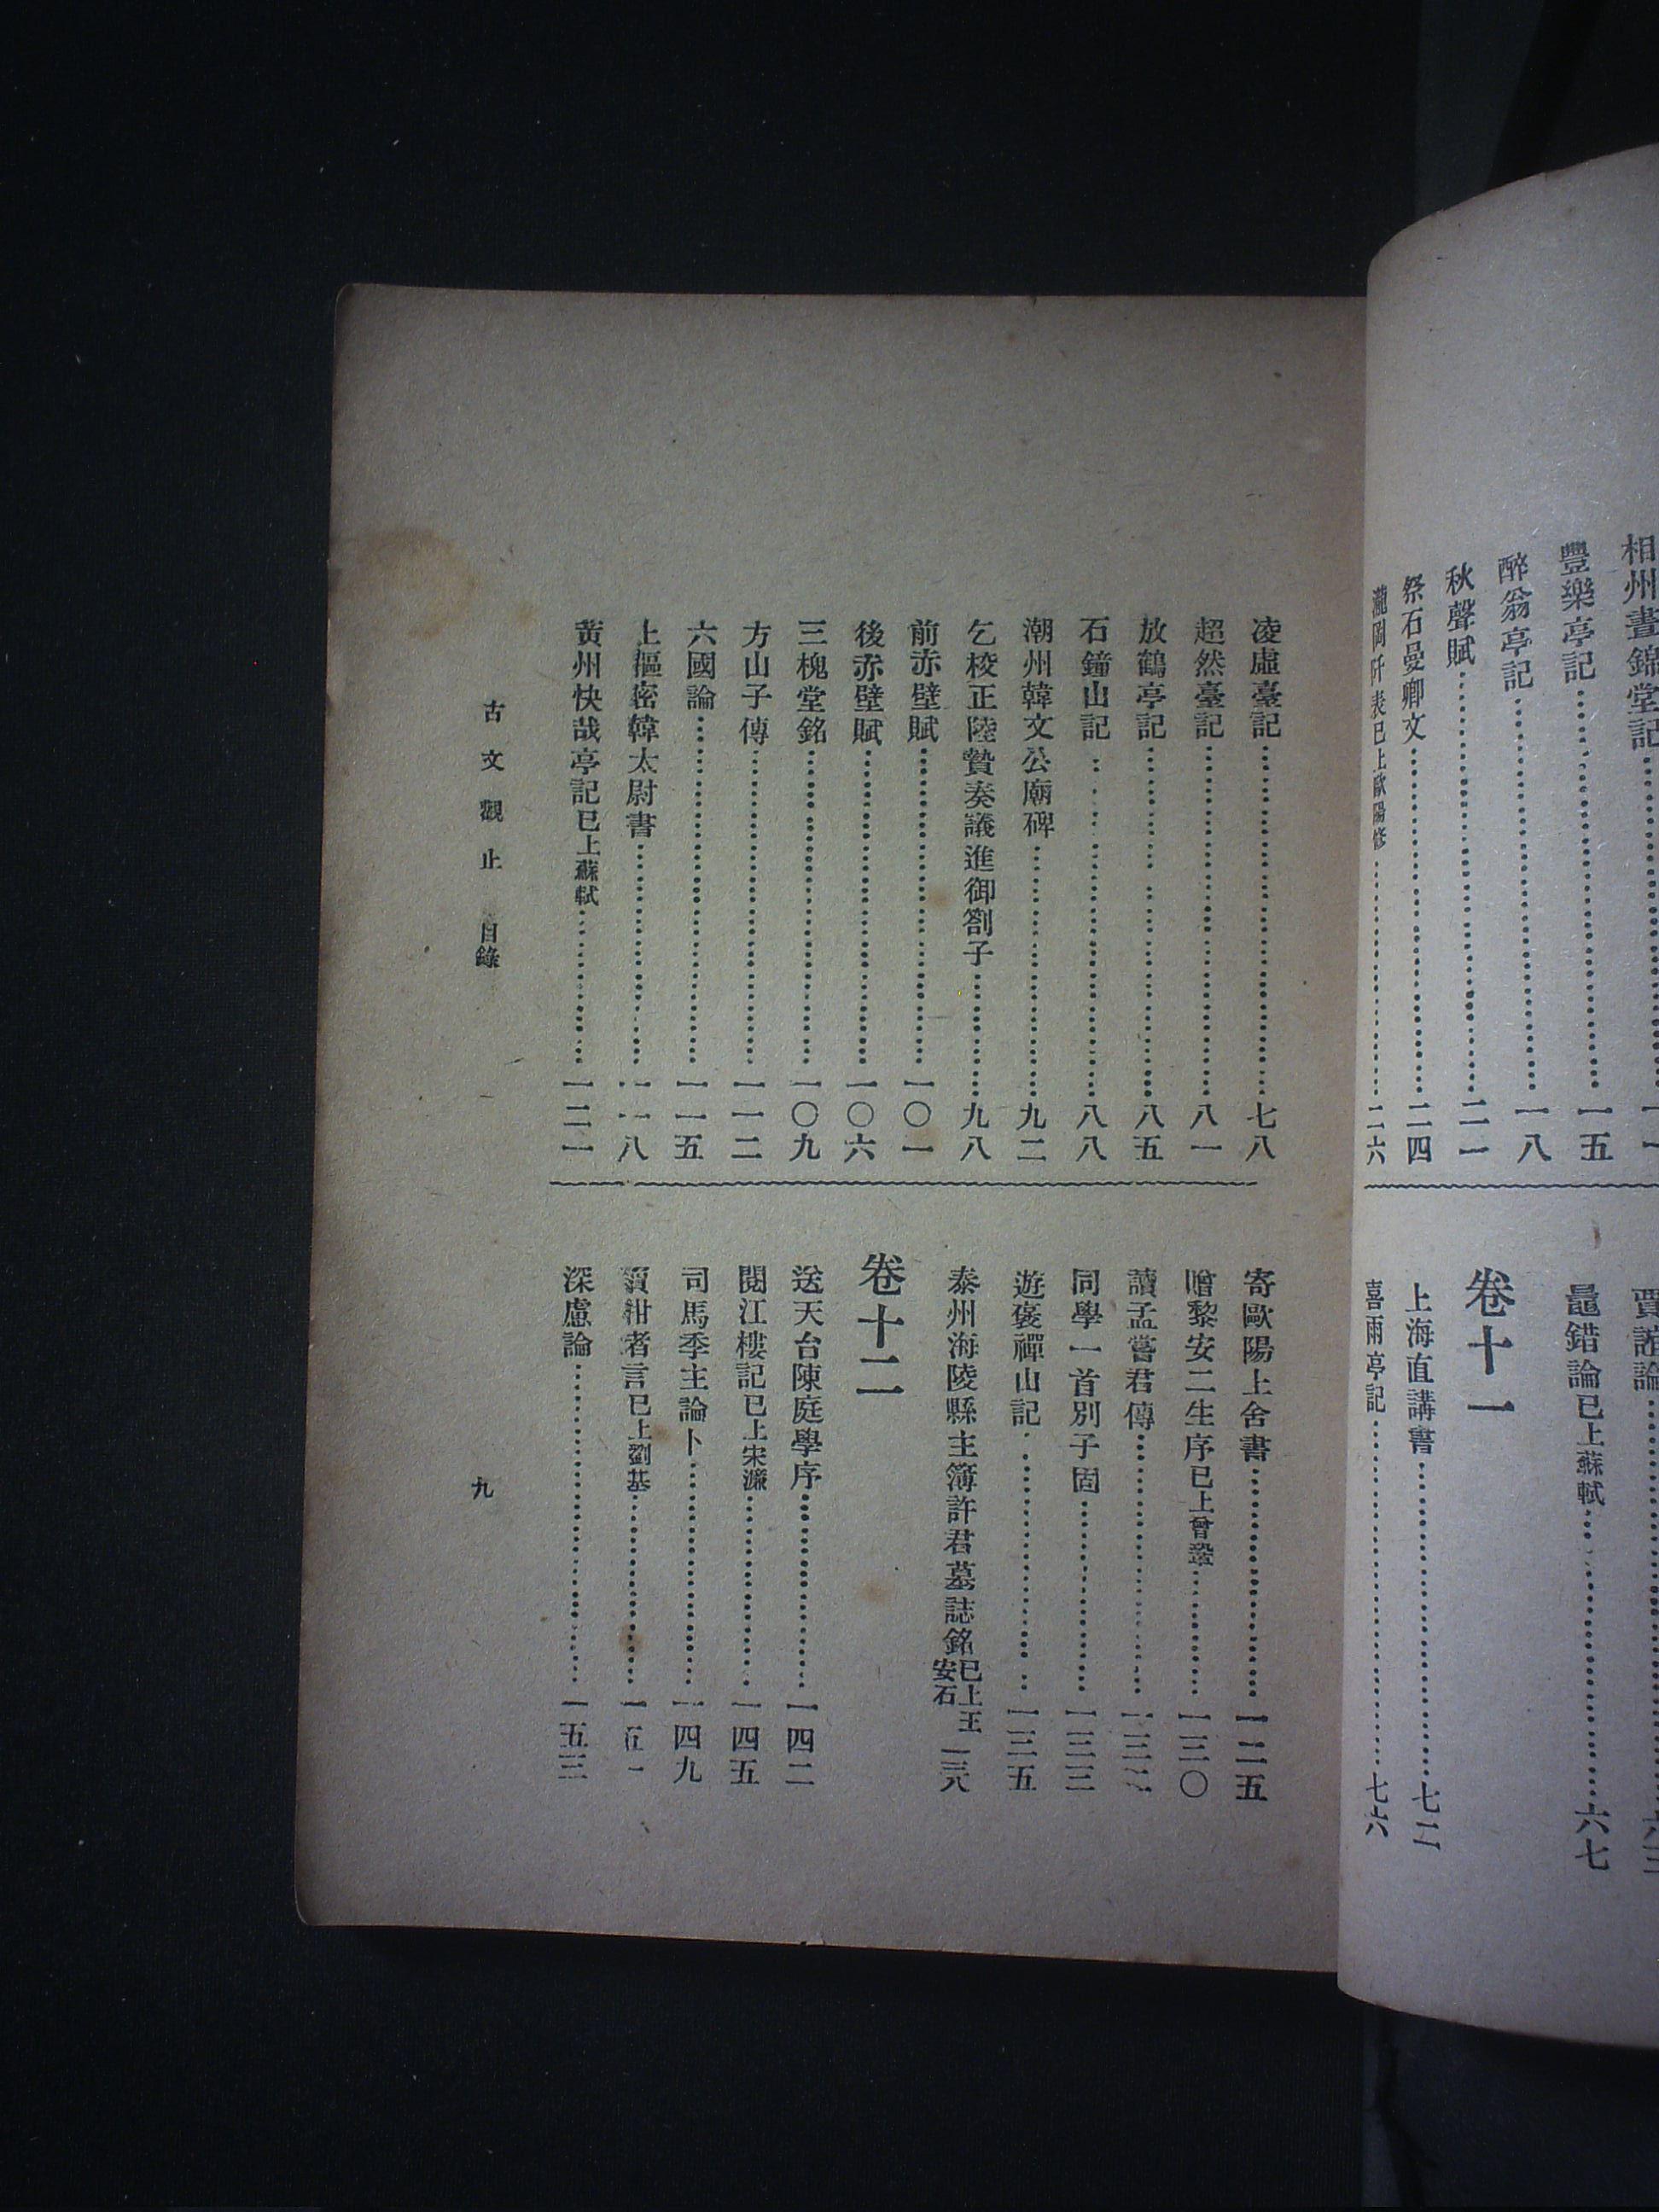 相州晝錦堂記……一一
豐樂亭記……一五
醉翁亭記……一八
秋聲賦……二一
祭石曼卿文……二四
瀧岡阡表已上歐陽修……二六
賈誼論……六三
鼂錯論已上蘇軾……六七
卷十一
上海直講書……七二
喜雨亭記……七六
凌虛臺記……七八
超然臺記……八一
放鶴亭記……八五
石鐘山記……八八
潮州韓文公廟碑……九二
乞校正陸贄奏議進御劄子……九八
前赤壁賦……一〇一
後赤壁賦……一〇六
三槐堂銘……一〇九
方山子傳……一一二
六國論……一一五
上樞密韓太尉書……一一八
黃州快哉亭記已上蘇軾……一二一
寄歐陽上舍書……一二五
贈黎安二生序已上曾鞏……一三〇
讀孟嘗君傳……一三二
同學一首別子固……一三三
遊褒禪山記……一三五
泰州海陵縣主簿許君墓誌銘已上王安石 一三九
卷十二
送天台陳庭學序……一四二
閱江樓記已上宋濂……一四五
司馬季主論卜……一四九
賣柑者言已上劉基……一五一
深慮論……一五三
古文觀止 目錄
九